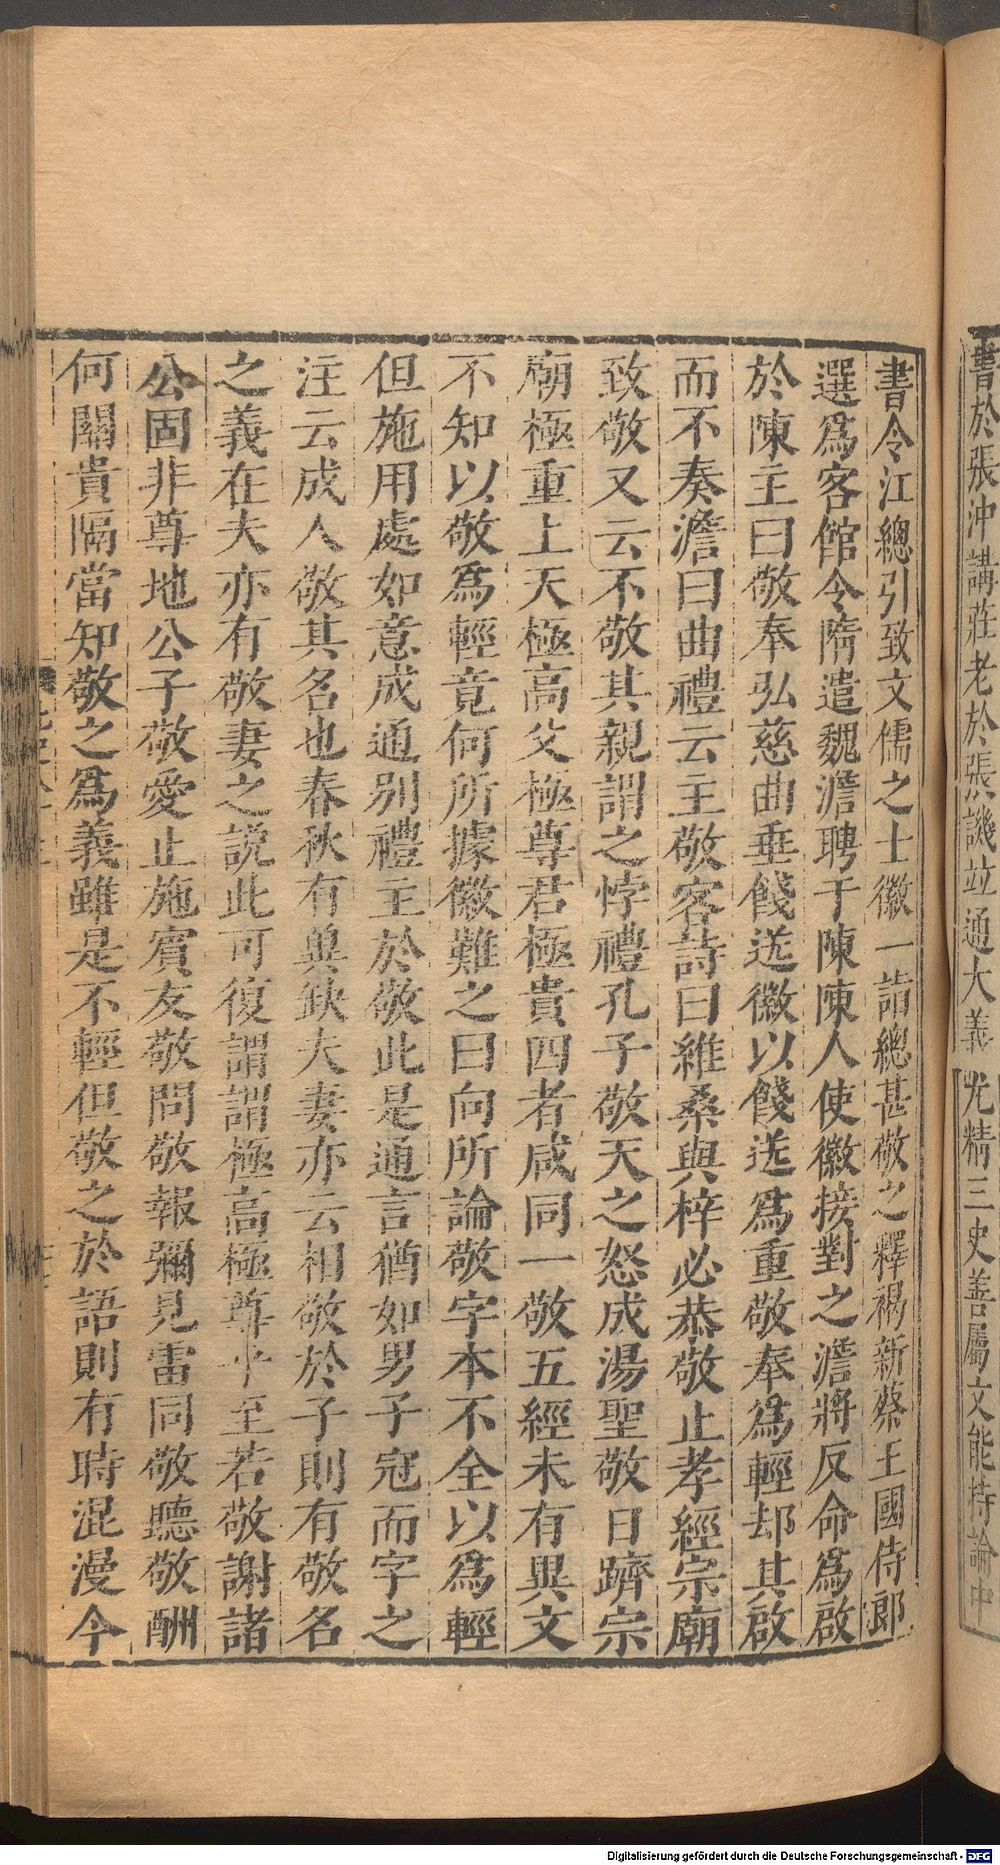 書於張沖講莊老於張譏並通大義尤精三史善屬文能持論中
書令江總引致文儒之士徽一詣總甚敬之釋褐新蔡王國侍郎
選爲客館令隋遣魏澹聘于陳陳人使徽接對之澹將反命爲啟
於陳主曰敬奉弘慈曲垂餞送徽以餞送爲重敬奉爲輕却其啟
而不奏澹曰曲禮云主敬客詩曰維桑與梓必恭敬止孝經宗廟
致敬又云不敬其親謂之悖禮孔子敬天之怒成湯聖敬日躋宗
廟極重上天極高父極尊君極貴四者咸同一敬五經未有異文
不知以敬爲輕竟何所據徽難之曰向所論敬字本不全以爲輕
但施用處如意成通别禮主於敬此是通言猶如男子冠而字之
注云成人敬其名也春秋有兾缺夫妻亦云相敬於子則有敬名
之義在夫亦有敬妻之説此可復謂謂極高極尊乎至若敬謝諸
公固非尊地公子敬愛止施賓友敬問敬報彌見雷同敬聽敬酬
何關貴隔當知敬之爲義雖是不輕但敬之於語則有時混漫今
Digitalisierung gefördert durch die Deutsche Forschungsgemeinschaft - DFG